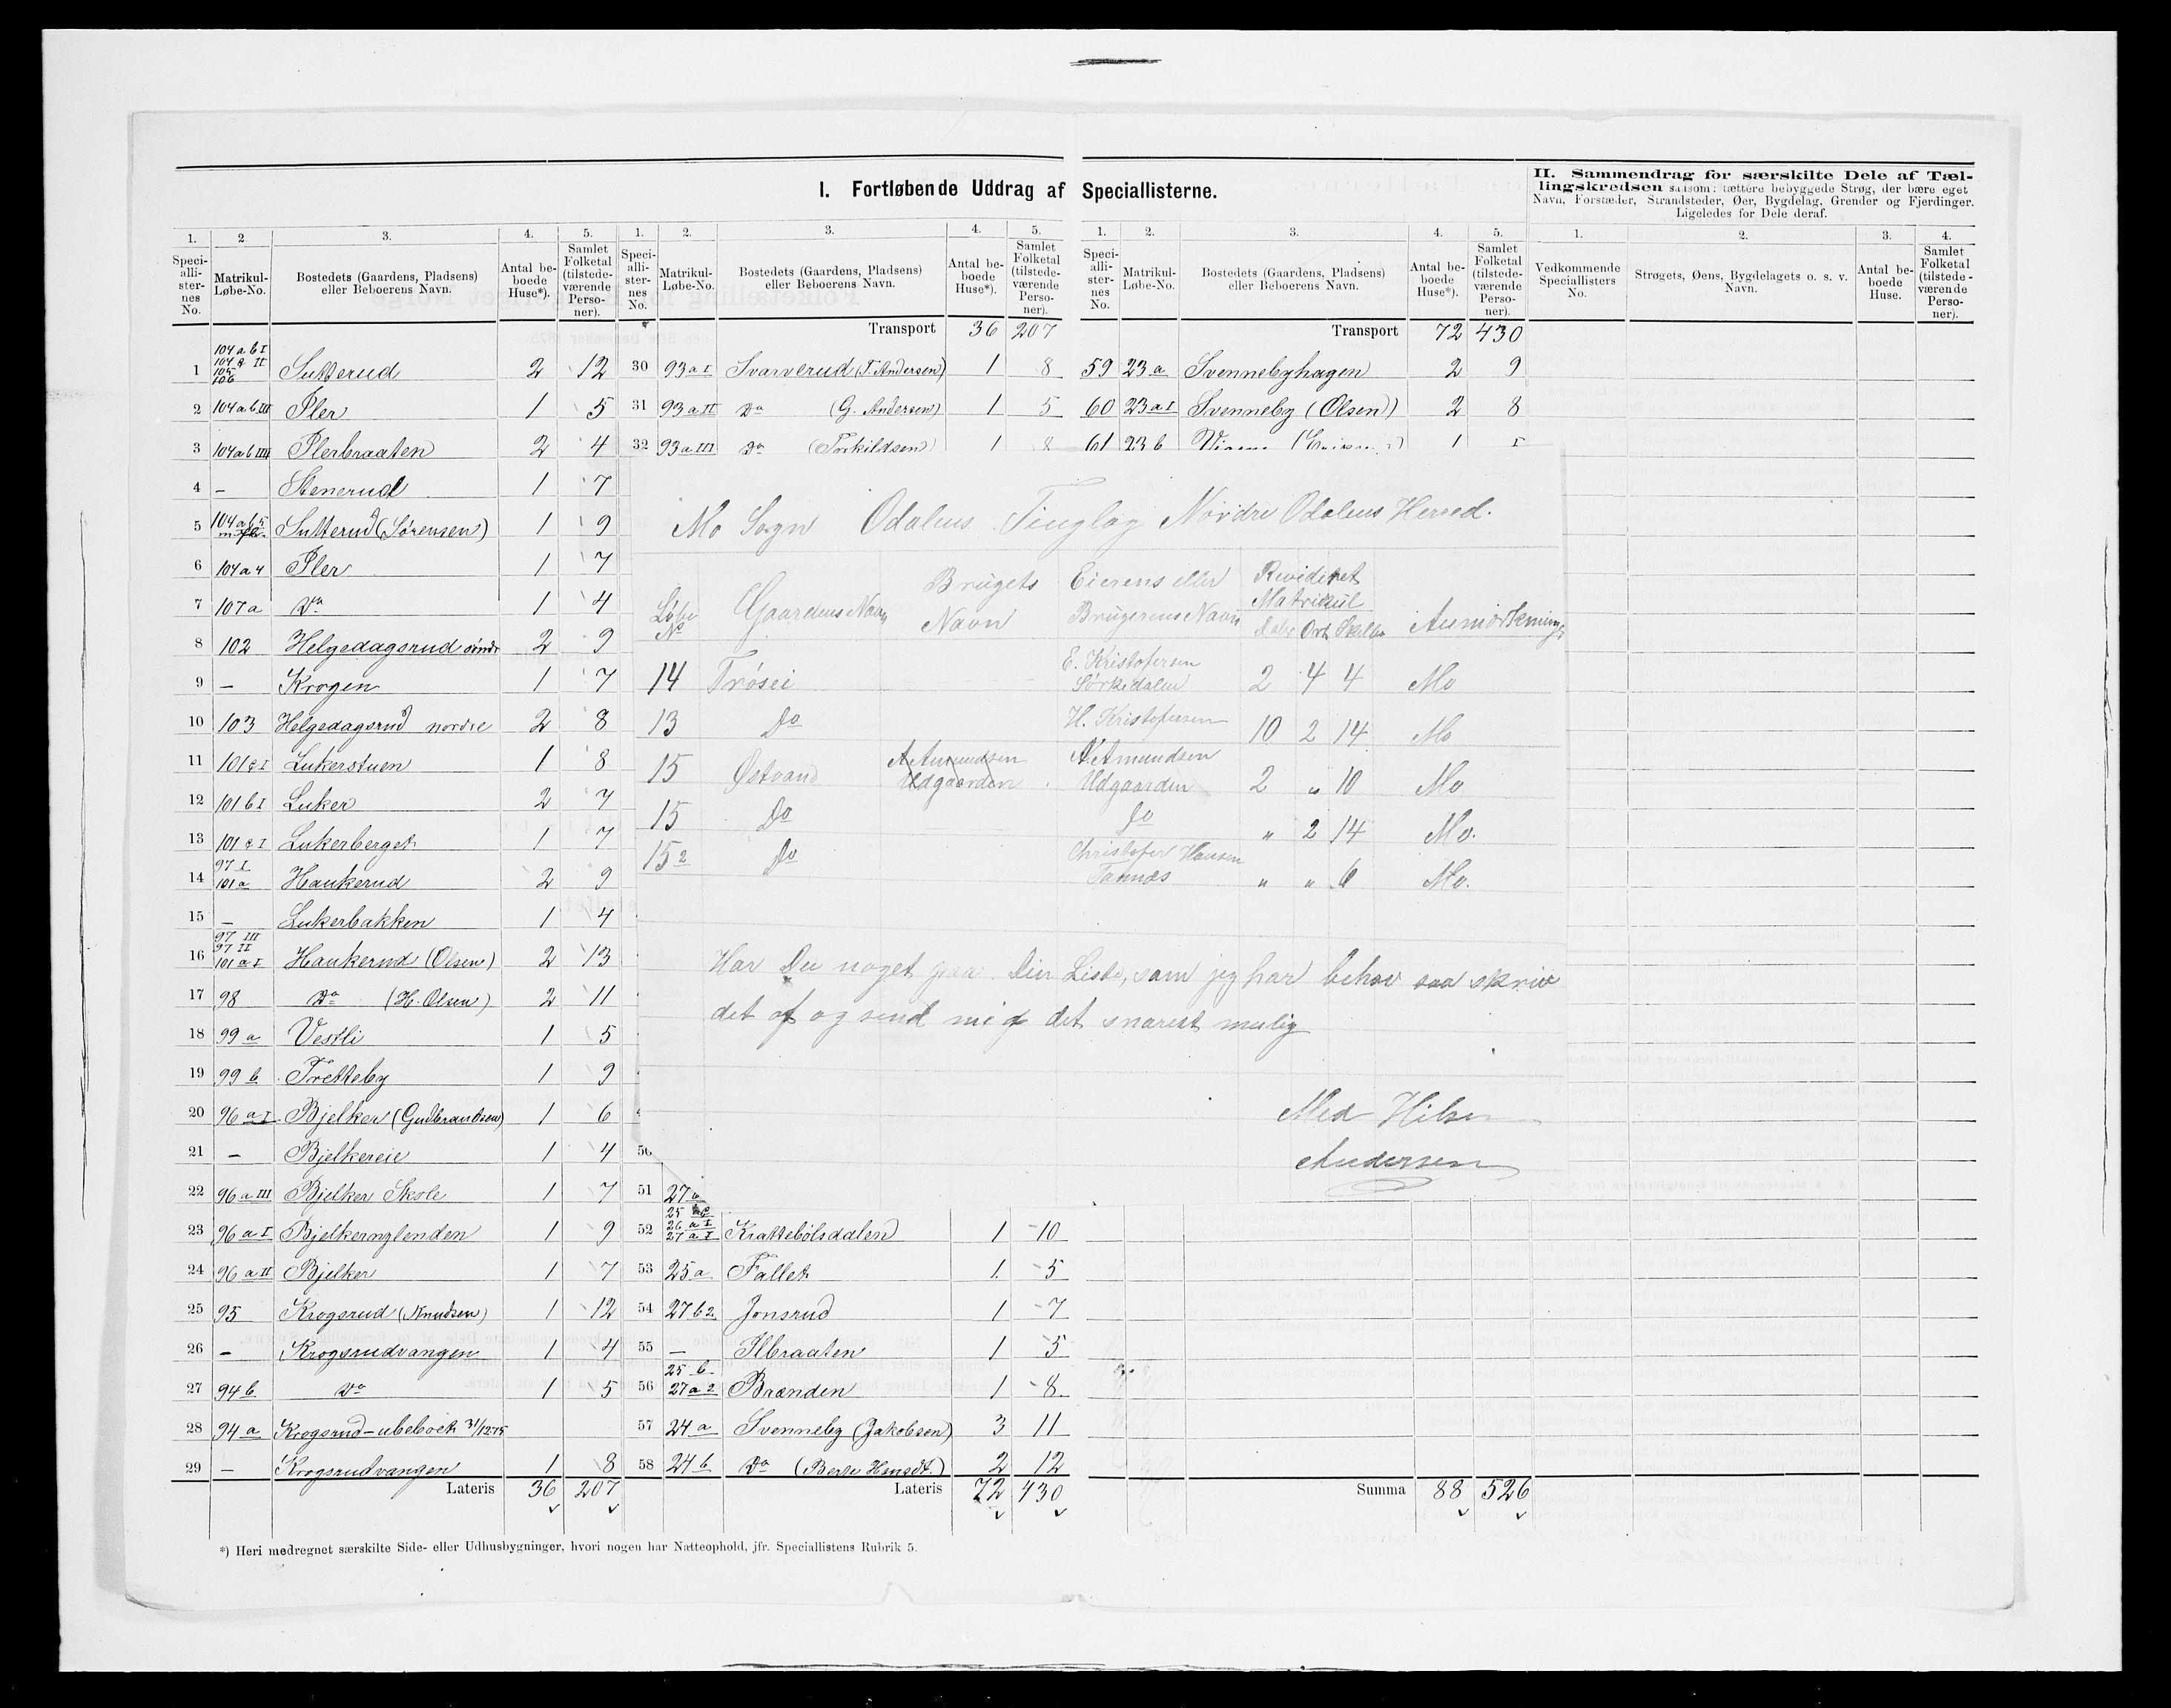 I. Fortløbende Uddrag af Speciallisterne.
II. Sammendrag for særskilte Dele af Tæl-
lingskredsen saasom: tættere bebyggede Strøg, der bære eget
Navn, Forstæder, Strandsteder, Øer, Bygdelag, Grender og Fjerdinger.
Ligeledes for Dele deraf.
1. 2. 3. 4. 5.
Speci-alli-ster-nes No. Matrikul-Løbe-No. Bostedets (Gaardens, Pladsens) eller Beboerens Navn. Antal be-boede Huse*). Samlet Folketal (tilstede-værende Perso-ner).
1 104 a b I 104 II 105 106 Sutterud 2 12
2 104 a b III Pler 1 5
3 104 a b IIII Plerbraaten 2 4
4 - Stenerud 1 7
5 104 a b 5 Sutterud (Sørensen) 1 9
6 104 a 4 Pler 1 7
7 107 a Do 1 4
8 102 Helgedagsrud søndr 2 9
9 - Krogen 1 7
10 103 Helgedagsrud nordre 2 8
11 101 c I Lukerstuen 1 8
12 101 b I Luker 2 7
13 101 c I Lukerberget 1 7
14 97 I 101 a Haukerud 2 9
15 - Lukerbakken 1 4
16 97 III 97 II 101 a I Haukerud (Olsen) 2 13
17 98 Do (H. Olsen) 2 11
18 99 a Vestli 1 5
19 99 b Tretteby 1 9
20 96 a I Bjelker (Gudbrandsen) 1 6
21 - Bjelkereie 1 4
22 96 a III Bjelker Skole 1 7
23 96 a I Bjelkernylenden 1 9
24 96 a II Bjelker 1 7
25 95 Krogsrud (Knudsen) 1 12
26 - Krogsrudvangen 1 4
27 94 b Do 1 5
28 94 a Krogsrud - ubeboet 31/12 75
29 - Krogsrudvangen 1 8
Lateris 36 207
1. 2. 3. 4. 5.
Speci-alli-ster-nes No. Matrikul-Løbe-No. Bostedets (Gaardens, Pladsens) eller Beboerens Navn. Antal be-boede Huse*). Samlet Folketal (tilstede-værende Perso-ner).
Transport 36 207
30 93 a I Svarverud (T. Andersen) 1 8
31 93 a II Do (G. Andersen) 1 5
32 93 a III Do (Torkildsen) 1 8
Mo Sogn Odalens Tinglag Nordre Odalens Herred.
Løbe No Gaardens Navn Brugets Navn Eierens eller Brugerens Navn Revideret Matrikul Daler Ort Skilling Anmærkning
14 Trøsei E. Kristofersen Sørkedalen 2 4 4 Mo
13 Do H. Kristofersen 10 2 14 Mo
15 Østvand A. Amundsen Udgaarden A. Amundsen Udgaarden 2 " 10 Mo
15 Do Do " 2 14 Mo.
15 2 Do Christofer Hansen " " 6 Mo.
Har Du noget paa Din Liste, som jeg har behov saa skriv
det af og send mig det snarest mulig
Med Hilsen
Andersen
50
51 27
52 25 26 a I 27 a I Krattebølsdalen 1 10
53 25 a Fallet 1 5
54 27 b 2 Jonsrud 1 7
55 - Ilbraaten 1 5
56 25 b 27 a 2 Brænden 1 8
57 24 a Svenneby (Jakobsen) 3 11
58 24 b Do (Berte Hansdt.) 2 12
Lateris 72 430
1. 2. 3. 4. 5.
Speci-alli-ster-nes No. Matrikul-Løbe-No. Bostedets (Gaardens, Pladsens) eller Beboerens Navn. Antal be-boede Huse*). Samlet Folketal (tilstede-værende Perso-ner).
Transport 72 430
59 23 a Svennebyhagen 2 9
60 23 a I Svenneby (Olsen) 2 8
61 23 b 1
Summa 88 526
1. 2. 3. 4.
Vedkommende Speciallisters No. Strøgets, Øens, Bygdelagets o. s. v. Navn. Antal be-boede Huse. Samlet Folketal (tilstede-værende Perso-ner).
*) Heri medregnet særskilte Side- eller Udhusbygninger, hvori nogen har Natteophold, jfr. Speciallistens Rubrik 5.